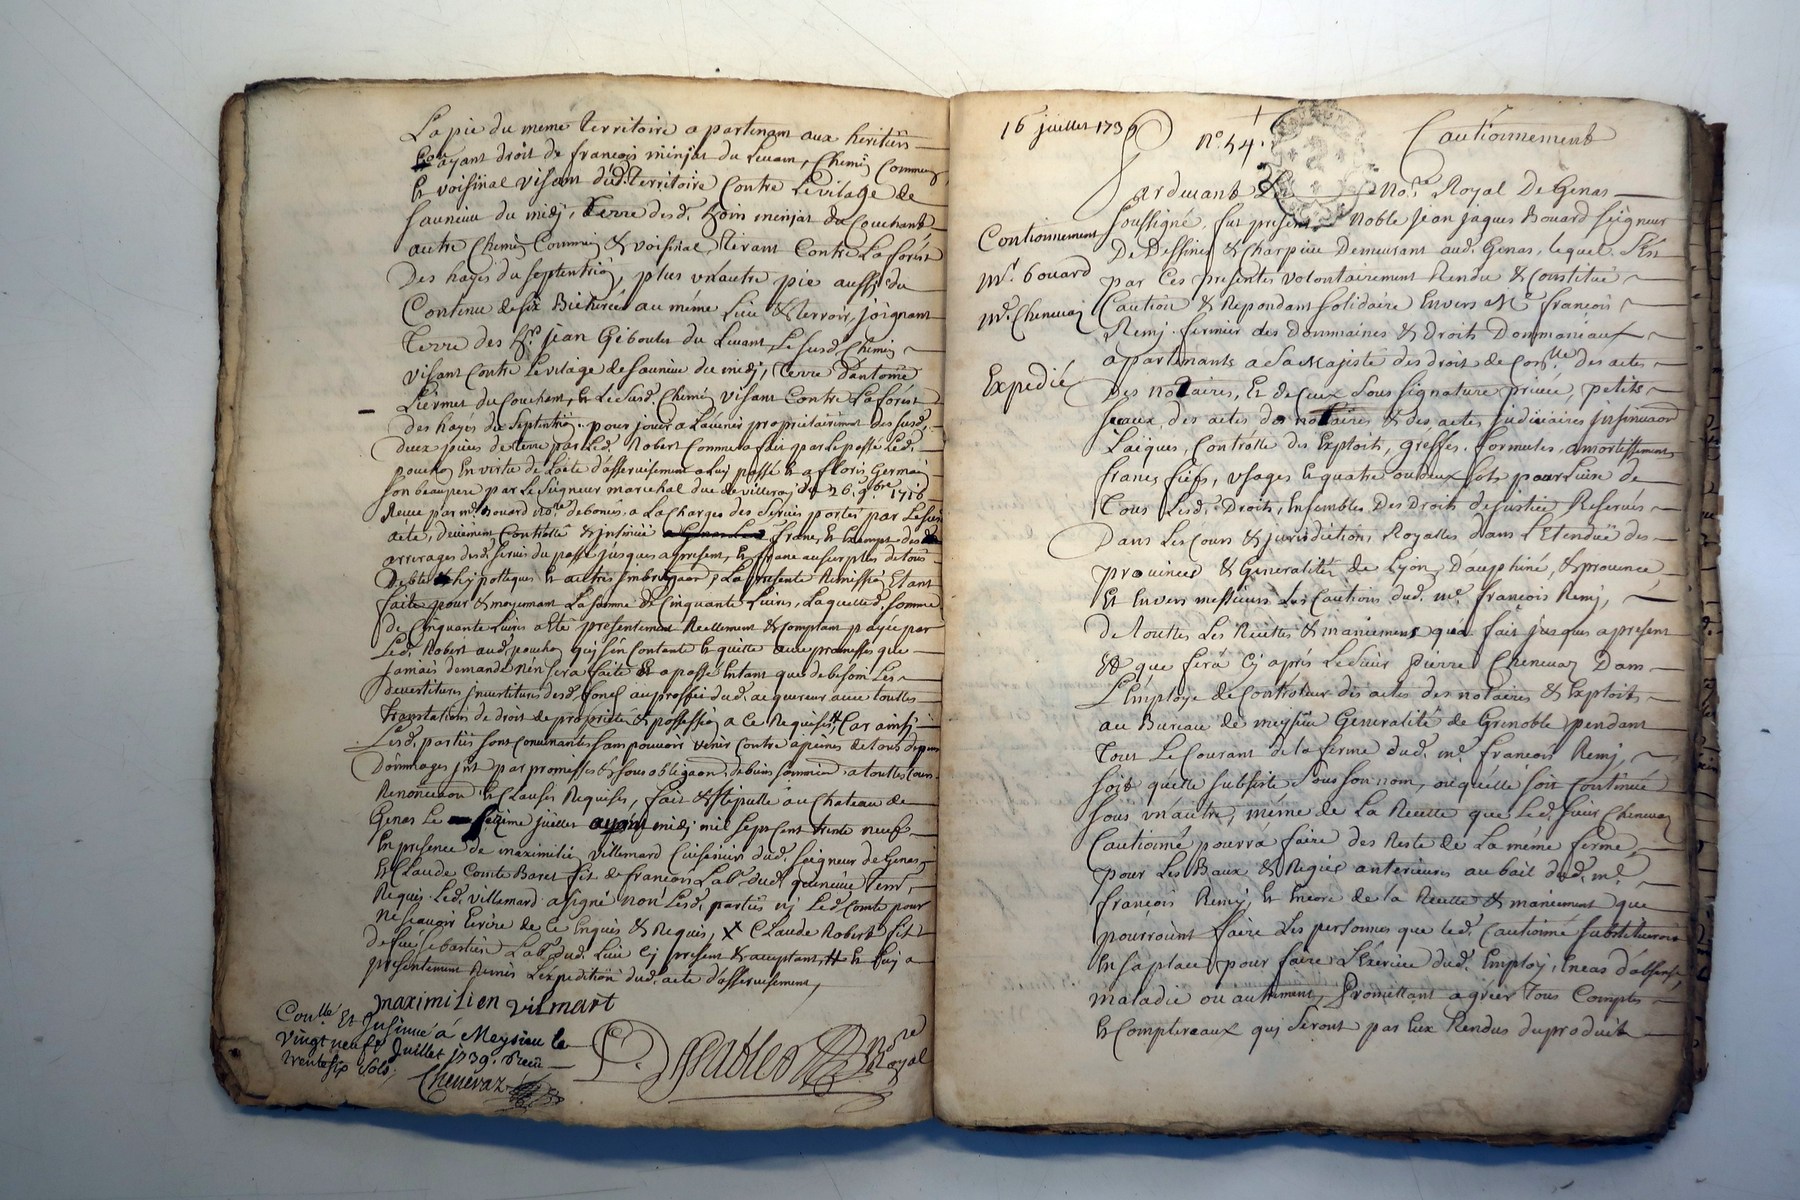 La pie du meme territoire apartenam aux heritiers
ayant droit de francois minjat du Levam, Chemin Commung
& voisinal visam dud. territoire Contre Le vilage de
Sauneuve du midj, terre desd. hoirs minjat du Couchant
autre Chemin Commun & voisinal tirant Contre La forest
Des hayes du septentrion, plus un autre pie aussi du
Contenu de six Bicherées au même Lieu & terroir, joignant
Terre des hrs jean Geboulet du Levant, Le susd. Chemin
visant Contre Le vilage de Sauneuve du midj, Terre d'antoine
du Couchant, & Le Susd. Chemin visant Contre La forest
des hayes du Septentrion. pour jouir a L'avenir propriétairement des susd.
deux pieces de terre par Led. Robert Comme a fait par Le passé Led.
en virtu de L'acte d'asservisement a Luy passé & a floris Germain
son beaupere par Le Seigneur marechal duc de villeroy du 26. 9bre 1716
Receu par me. Bouard nore. a La Charges des Servis portés par Le susd.
acte, deuëment Controllé & insinué franc, & Exempt des
arrerages desd. servis du passé jusques a present, & franc au surplus de tous
Debte hypotteques & autres La presente Remission Etant
faite pour & moyennant La somme de Cinquante Livres, Laquelle d. somme
de Cinquante Livres a Eté presentement Reellement & Comptam payée par
Led. Robert aud. quj s'en Contante & quitte avec promesses que
jamais demande n'en sera faite & a passé En tant que de besoin Les
devestitures investitures desd. fonds au proffit dud. acquereur avec touttes
translations de droit de proprieté & possession a Ce Requises, Car ainsj
Lesd. parties sont Convenantes sans pouvoir venir Contre a peines de tous depens
Dommages jnt. par promesses & sous obligaon. de biens a touttes Cours
Renonciaon & Clauses Requises, fait & stipullé au Chateau de
Genas Le seizieme juillet midj mil sept Cent trente neuf
En presence de maximilien villemard Cuisinier dud. seigneur de Genas
& Claude Comte Baret fils de francois Labr. dud.
Requis. Led. villemard a signé non Lesd. parties nj Led. Comte pour
ne sçavoir Ecrire de Ce Enquis & Requis, X Claude Robert fils
de feu sebastien Labr. dud. Lieu Cj present & acceptant & Luy a
presentement Remis L'expedition dud. acte d'asservisement,
maximilien vilmart
Conllé Et Insinué á Meysieu le
vingt neuf Juillet 1739. Receu
trente six sols.
Chenevaz
nore
Royal
16 juillet 1739
No. 54.
Cautionnement
Pardevant Le Nore. Royal De Genas
soussigné, fut present Noble Jean jaques Bouard seigneur
De Dessines & Charpieu Demeurant aud. Genas, lequel s'est
par Ces presentes volontairement Rendu & Constitué
Caution & Repondant solidaire Envers Me francois
Remj fermier des Dommaines & Droits Dommaniaux
apartenants a Sa Majesté des droit de Conlle. des actes
Des notaires, & de Ceux sous signature privée, petits
sceaux des actes de notaires & des actes judiciaires insinuaon
Laiques, Controlle des Exploits, greffes, formules, amortissements
francs fiefs, usages & quatre ou deux sols pour Livre de
Tous Lesd. Droits, Ensembles Des Droits de justice Reservés
Dans Les Cours & jurisdictions Royalles dans L'Etenduë des
provinces & Generalités de Lyon, Dauphiné, & provence,
Et Envers messieurs Les Cautions dud. me. francois Remj,
de touttes Les Recettes & maniement qu'a fait jusques a present
& que fera Cj aprés Le Sieur Pierre Chenevaz Dans
L'Employ de Controleur des actes des notaires & Exploits
au Bureau de meysieu Generalité de Grenoble pendant
Tout Le Courant de la ferme dud. me. francois Remj,
soit qu'elle subsiste sous son nom, ou qu'elle soit Continué
sous un autre, même de La Recette que Led. sieur Chenevaz
Cautionné pourra faire des Reste de La même ferme,
pour Les Baux & Regies anterieures au bail dud. me.
francois Remj, & Encore de la Recette & maniement que
pourroient faire Les personnes que led. Cautionné substitueroit
En sa place pour faire L'Exercice dud. Employ, En cas d'absence,
maladie ou autrement, Promettant agréer Tous Comptes
& Comptereaux quj seront par Eux Rendus du produit
Contionnement
Mr. bouard
Mr. Chenevaz
Expedié